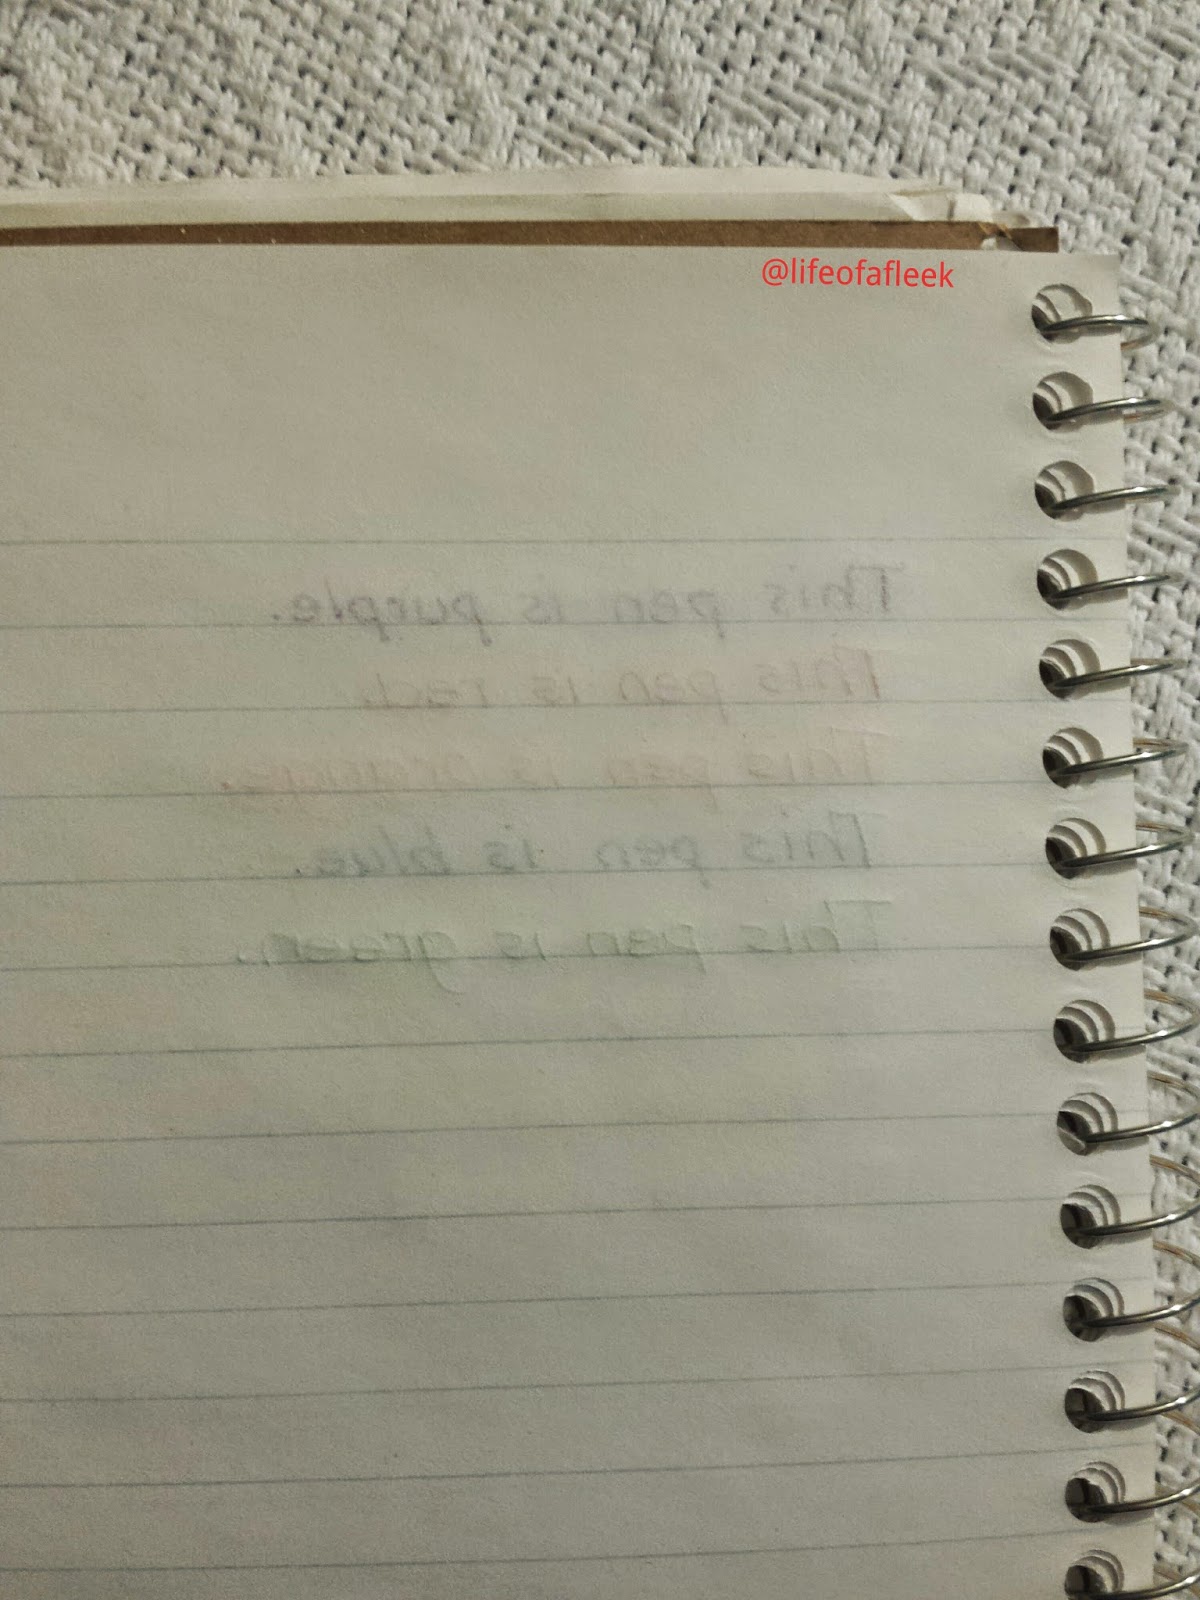 @lifeofafleek
This pen is purple.
This pen is red.
This pen is orange.
This pen is blue.
This pen is green.